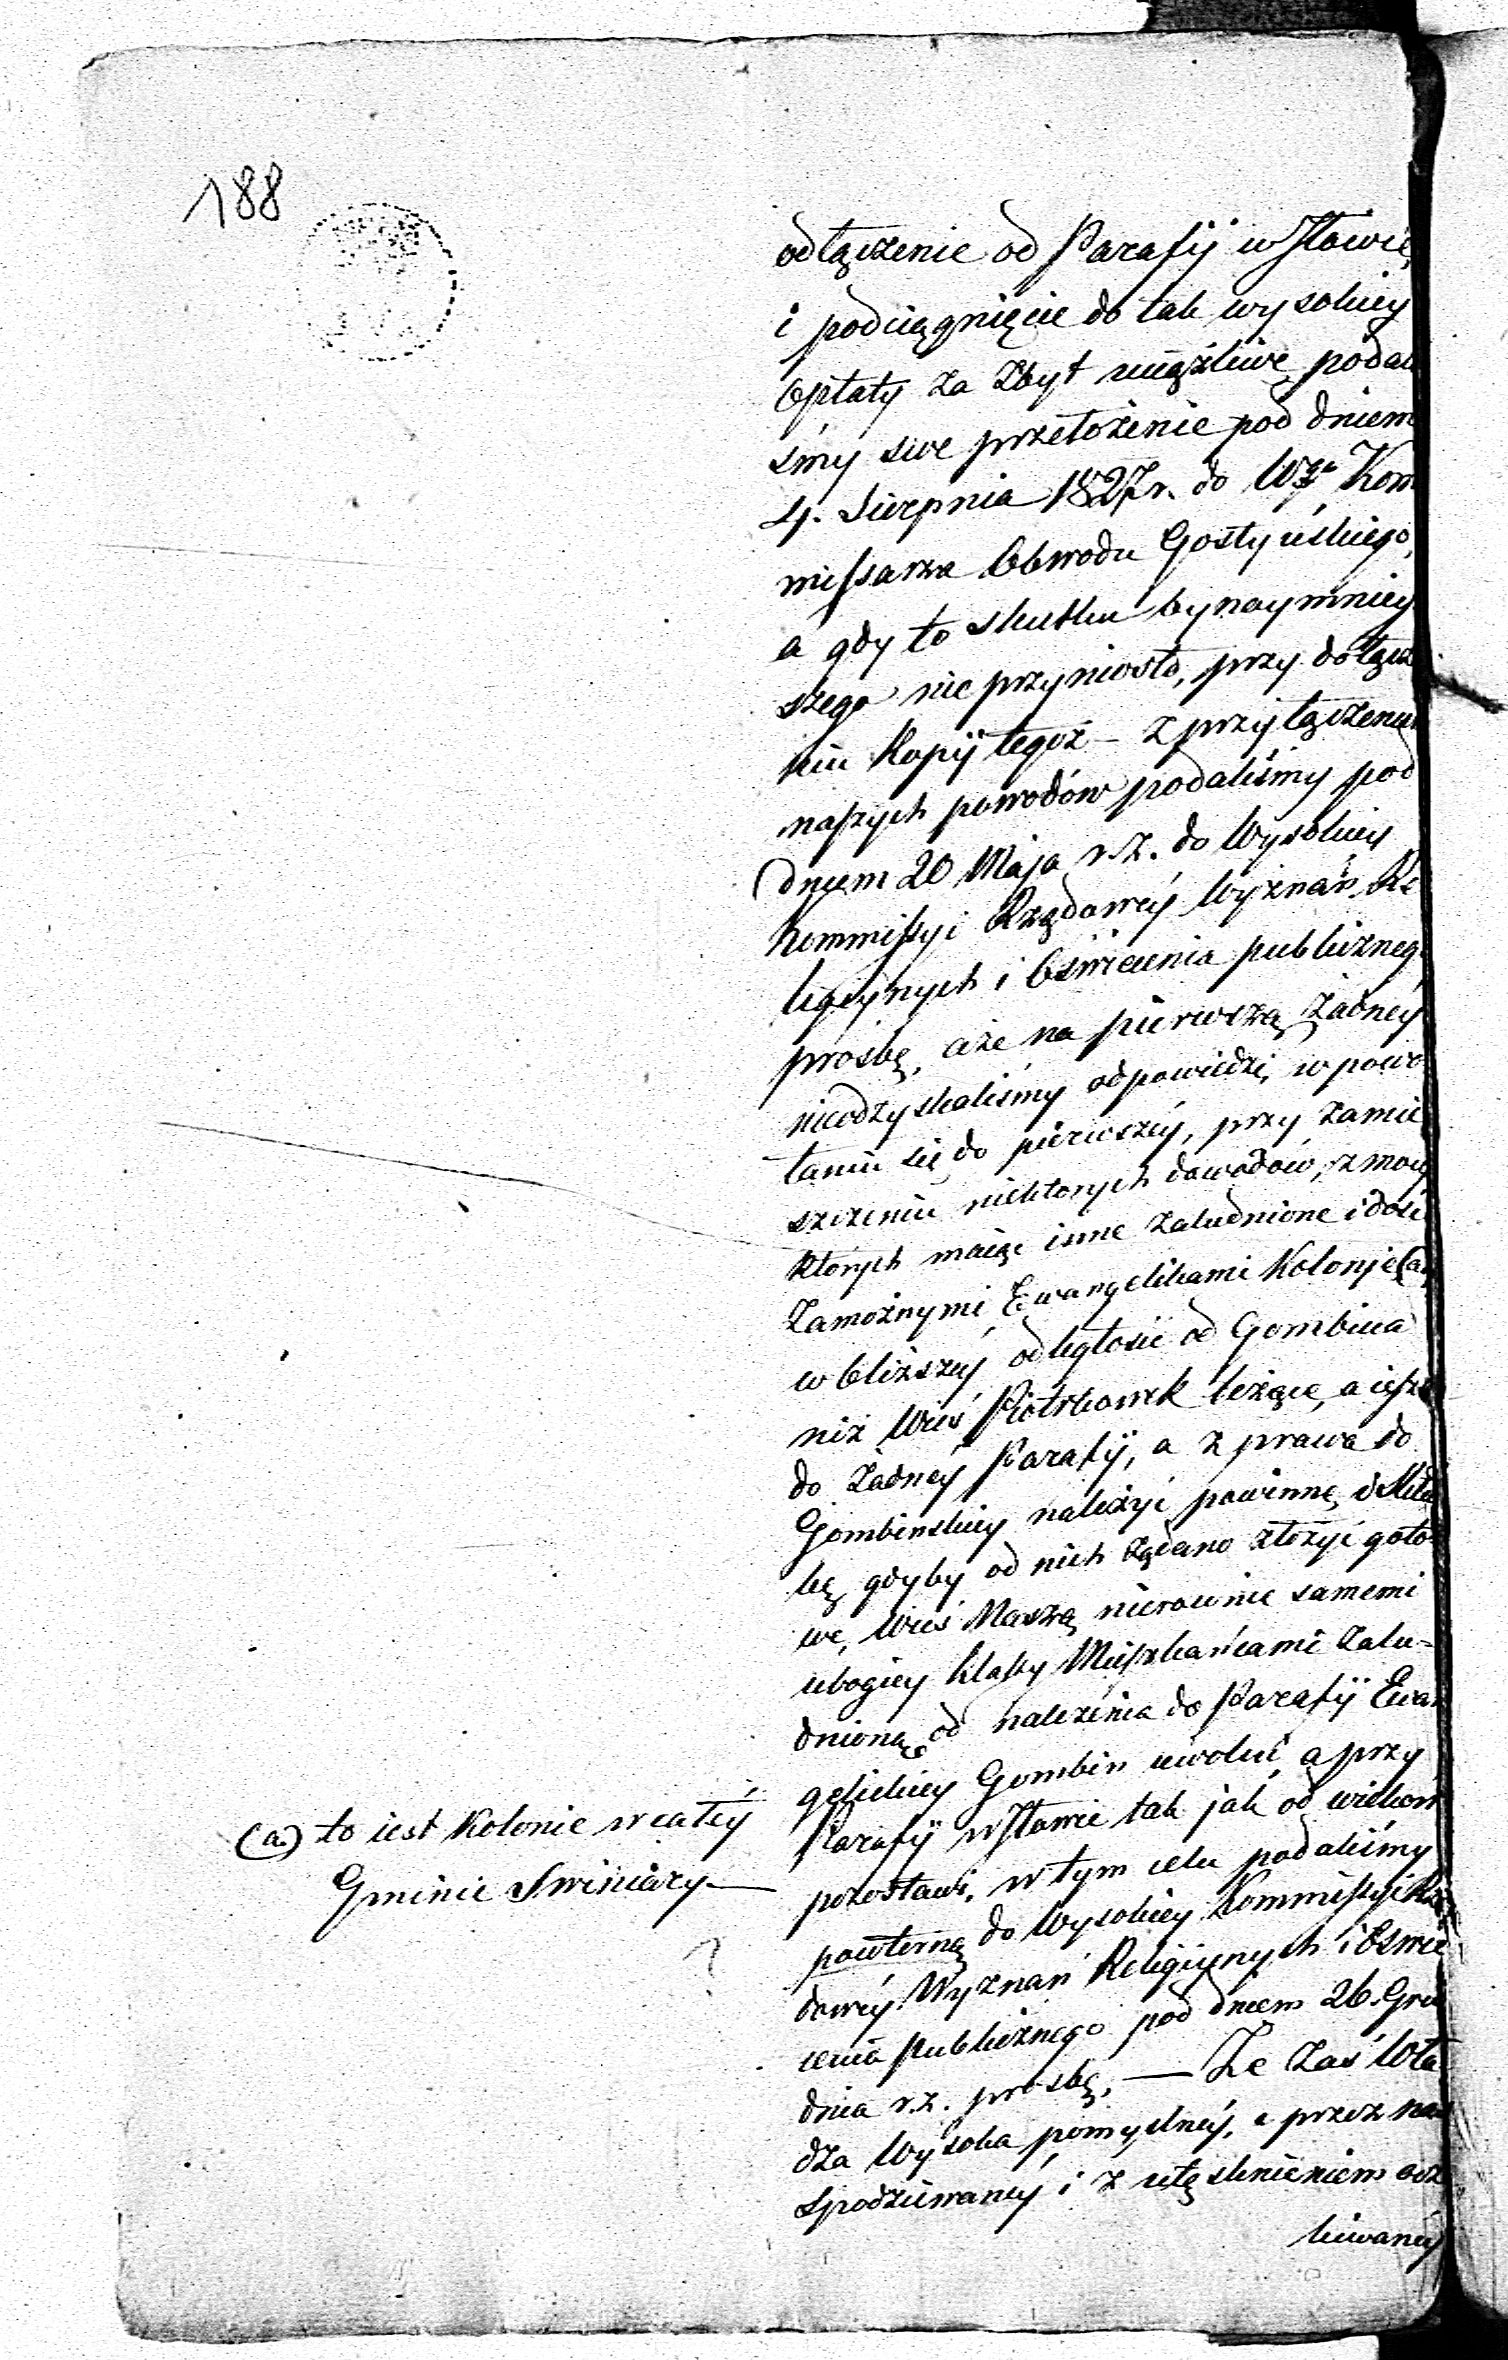 188
odłączenie od Parafij w Iłowie
i podciągnięcie do tak wysokiey
Opłaty za zbyt uciążliwe podali
śmy swe przełożenie pod dniem
4. Sierpnia 1827 r. do Wgo Kom
missarza Obwodu Gostyńskiego,
a gdy to skutku bynaymniey
szego nie przyniosło, przy dołącze
niu Kopij tegoż – z przyłączeniem
naszych powodów podaliśmy pod
dniem 20 Maja r. z. do Wysokiey
Kommissyi Rządowey Wyznań Re
ligiynych i Oświecenia publicznego
prosbę, a że na pierwszą żadney
nieodzyskaliśmy odpowiedzi, w powo
łaniu się do pierwszey, przy zamie
szczeniu niektorych dowodów, z mocy
ktorych maiąc inne zaludnione i dość
Zamożnymi Ewangelikami Kolonje (a)
w bliższey odległości od Gombina
niż Wieś Piotrkowek leżące, a ieszcze
do żadney Parafij, a z prawa do
Gombinskiey należyć powinne, i Skład
kę gdyby od nich żądano złożyć goto
we, Wieś Naszą nierownie samemi
ubogiey klassy Mieszkańcami zalu-
dnioną od należenia do Parafij Ewan
gelickiey Gombin uwolnić, a przy
Parafij w Iłowie tak jak od wieków
pozostawi, w tym celu podaliśmy
powtorną do Wysokiey Kommissyi Rzą
dowey Wyznań Religiynych i Oświe
cenia publicznego pod dniem 26. Gru
dnia r. z. prosbę. — Że zaś Wła
dza Wysoka pomyślney, a przez nas
spodziewaney i z utęsknieniem ocze
kiwaney
(a) to iest Kolonie w całéy
Gminie Swiniary —